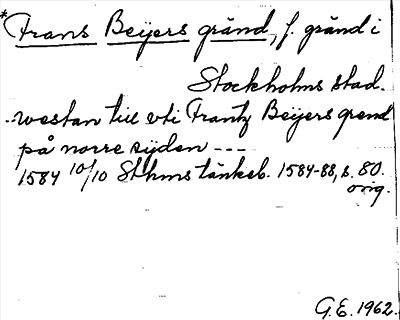 *Frans Beijers gränd, f. gränd i
Stockholms stad.
..westan till vti Frantz Beijers grend
på norre sijden ---
1584 10/10 Sthms tänkeb. 1584-88, s. 80.
orig.
G.E. 1962.